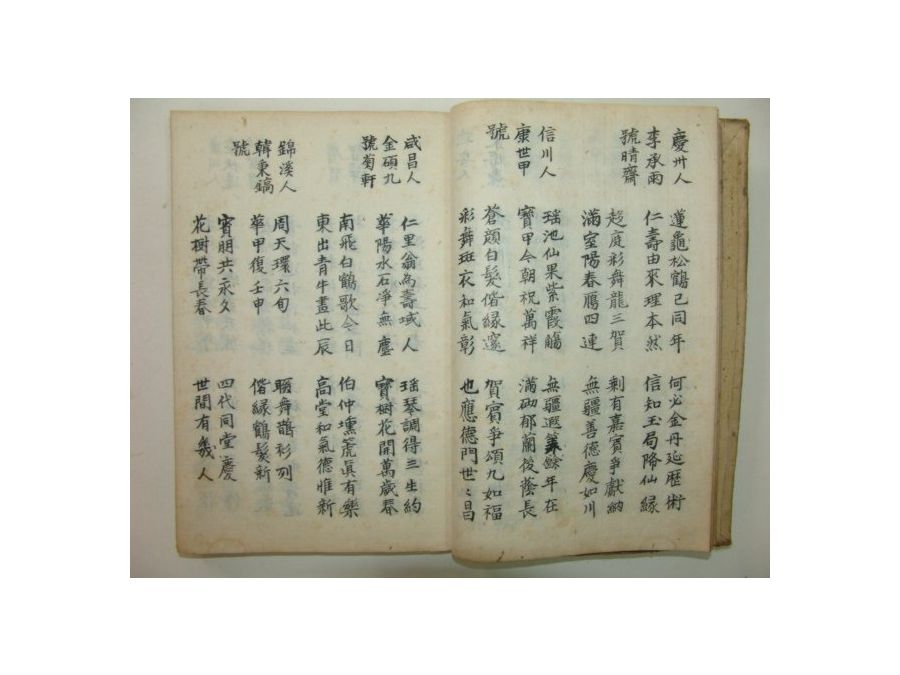 慶州人
李承雨
號晴齋
蓮龜松鶴已同年 何必金丹延歷術
仁壽由來理本然 信知玉局降仙緣
趍庭彩舞龍三賀 剩有嘉賓爭獻納
滿室陽春鴈四連 無疆善德慶如川
信川人
康世甲
號
瑤池仙果紫霞觴 無疆遐筭餘年在
寶甲今朝祝萬祥 滿砌郁蘭後蔭長
蒼顔白髮偕緣邃 賀賓爭頌九如福
彩舞斑衣和氣彰 也應德門世〻昌
咸昌人
金碩九
號菊軒
仁里翁為壽域人 瑤琴調得三生約
華陽水石淨無塵 寶樹花開萬歲春
南飛白鶴歌今日 伯仲壎箎眞有樂
東出青牛盡此辰 高堂和氣德惟新
錦溪人
韓秉鎬
號
周天環六旬 聯舞鵲衫列
華甲復壬申 偕緣鶴髮新
賓朋共永久 四代同堂慶
花樹帶長春 世間有幾人